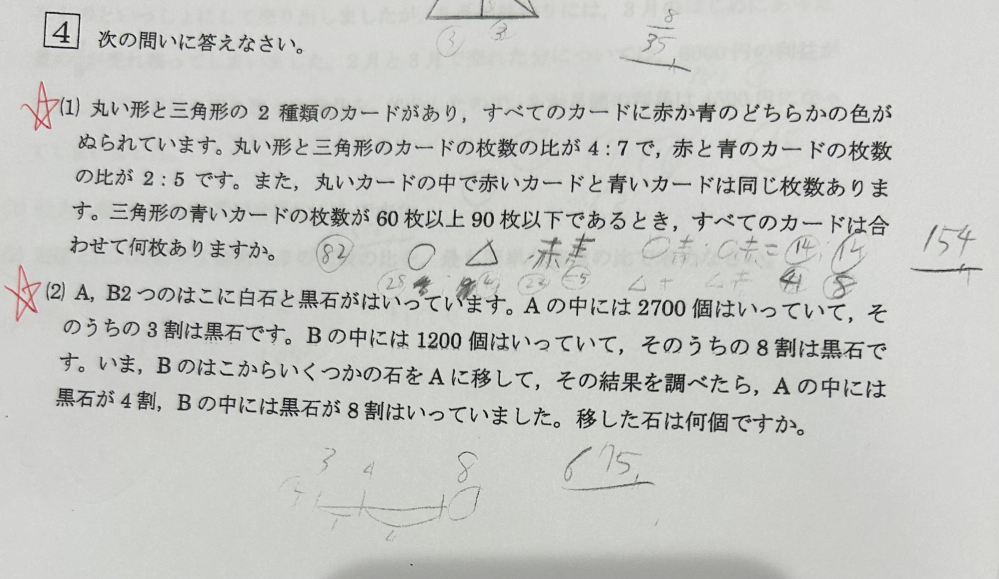 8
35
4 次の問いに答えなさい。
(1) 丸い形と三角形の 2 種類のカードがあり，すべてのカードに赤か青のどちらかの色が
ぬられています。丸い形と三角形のカードの枚数の比が 4 : 7 で，赤と青のカードの枚数
の比が 2 : 5 です。また，丸いカードの中で赤いカードと青いカードは同じ枚数ありま
す。三角形の青いカードの枚数が 60 枚以上 90 枚以下であるとき，すべてのカードは合
わせて何枚ありますか。
154
(2) A，B2つのはこに白石と黒石がはいっています。Aの中には 2700 個はいっていて，そ
のうちの 3 割は黒石です。B の中には 1200 個はいっていて，そのうちの 8 割は黒石で
す。いま，B のはこからいくつかの石を A に移して，その結果を調べたら，A の中には
黒石が 4 割，B の中には黒石が 8 割はいっていました。移した石は何個ですか。
3 4 8
675